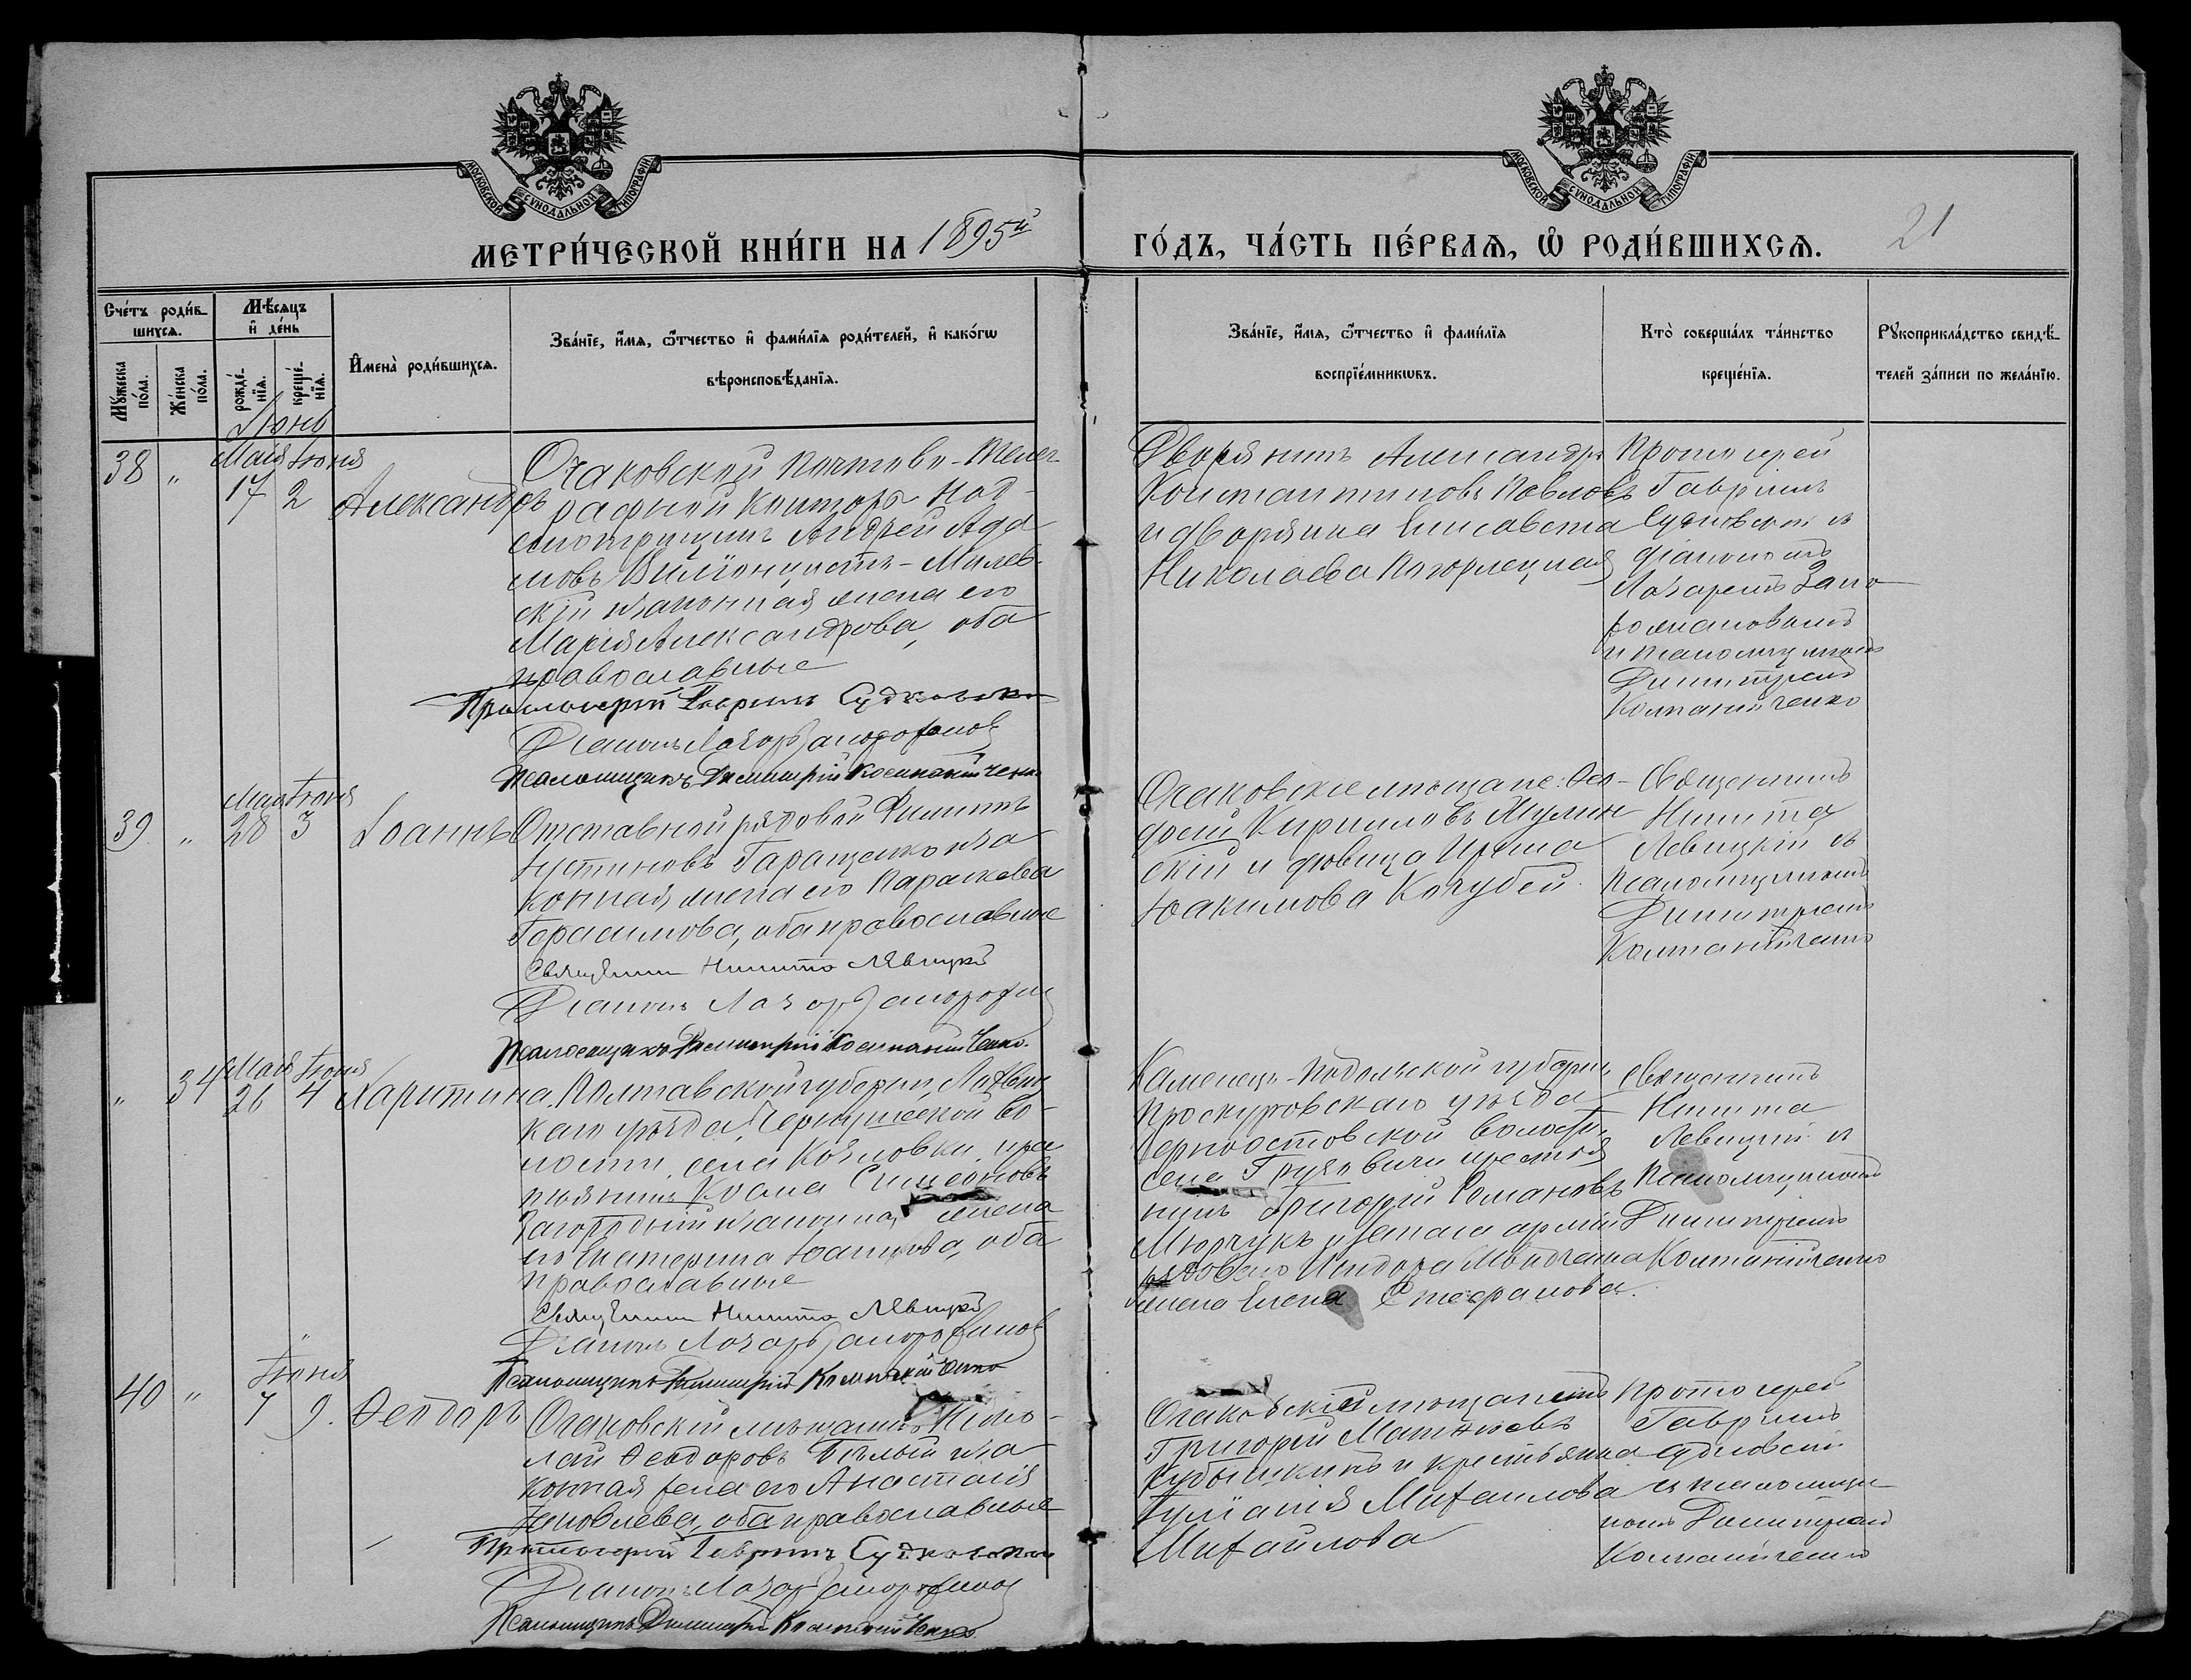 МОСКОВСКОЙ СѴНОДАЛЬНОЙ ТИПОГРАФІИ
МОСКОВСКОЙ СѴНОДАЛЬНОЙ ТИПОГРАФІИ
МЕТРИ́ЧЕСКОЙ КНИ́ГИ НА 1895й
ГО́ДЪ, ЧА́СТЬ ПЕ́РВАѦ, Ѡ҆ РОДИ́ВШИХСѦ.
21
Сче́тъ роди́в-
шихсѧ.
Мѣ́сѧцъ
и҆ де́нь
Мꙋ́жеска по́ла.
Же́нска по́ла.
рожде́-нїѧ.
креще́-нїѧ.
И҆мена̀ роди́вшихсѧ.
Зва́нїе, и҆́мѧ, ѻ҆́тчество и҆ фами́лїѧ роди́телей, и҆ како́гѡ
вѣроисповѣ́данїѧ.
Зва́нїе, и҆́мѧ, ѻ҆́тчество и҆ фами́лїѧ
воспрїе́мникѡвъ.
Кто̀ соверша́лъ та́инство
креще́нїѧ.
Рꙋкоприкла́дство свидѣ́-
телей за́писи по жела́нїю.
Іюнь
38 " Мая 17 Іюня 2 Александръ
Очаковской Почтово-Телег-
рафной Конторы Над-
смотрщикъ Андрей Ада-
мовъ Милев-
скій и законная жена его
Марія Александрова, оба
православные
Протоіерей Гавріилъ Судковскій
Діаконъ Лазарь
Псаломщикъ Димитрій Компанійченко
Дворянинъ Александръ
Константиновъ Павловъ
и дворянка Елисавета
Николаева Погорлецкая
Протоіерей
Гавріилъ
Судковскій съ
діакономъ
Лазаремъ
и псаломщикомъ
Димитріемъ
Компанійченко
39 " Мая 28 Іюня 3 Іоаннъ
Отставной рядовой Димитрій
Устиновъ Геращенко и за-
конная жена его Параскева
Герасимова, оба православные
Священникъ Никита Левицкій
Діаконъ Лазарь
Псаломщикъ Димитрій Компанійченко
Очаковскіе мѣщане: Ѳео-
досій Кирилловъ
скій и дѣвица Ирина
Іоакимова Кочубей.
Священникъ
Никита
Левицкій съ
Псаломщикомъ
Димитріемъ
Компанійченко
" 34 Мая 26 Іюня 4 Харитина
Полтавской губерніи, Лохвиц-
каго уѣзда, Чернушской во-
лости, села Козловки, крес-
тьянинъ Косма Симеоновъ
Загородній и законная жена
его Екатерина, оба
православные
Священникъ Никита Левицкій
Діаконъ Лазарь
Псаломщикъ Димитрій Компанійченко
Каменецъ-Подольской губерніи,
Проскуровскаго уѣзда
Черноостовской волости,
села Грузевичи крестья-
нинъ Григорій Романовъ
и запаса арміи
рядоваго Исидора
жена Елена Стефанова.
Священникъ
Никита
Левицкій съ
Псаломщикомъ
Димитріемъ
Компанійченко
40 " Іюня 7 9. Ѳеодоръ
Очаковскій мѣщанинъ Нико-
лай Ѳеодоровъ Бѣлый и за-
конная жена его Анастасія
Яковлева, оба православные
Протоіерей Гавріилъ Судковскій
Діаконъ Лазарь
Псаломщикъ Димитрій Компанійченко
Очаковскій мѣщанинъ
Григорій Матѳіевъ
и крестьянка
Іуліанія Михаилова
Михайлова
Протоіерей
Гавріилъ
Судковскій
съ псаломщи-
комъ Димитріемъ
Компанійченко